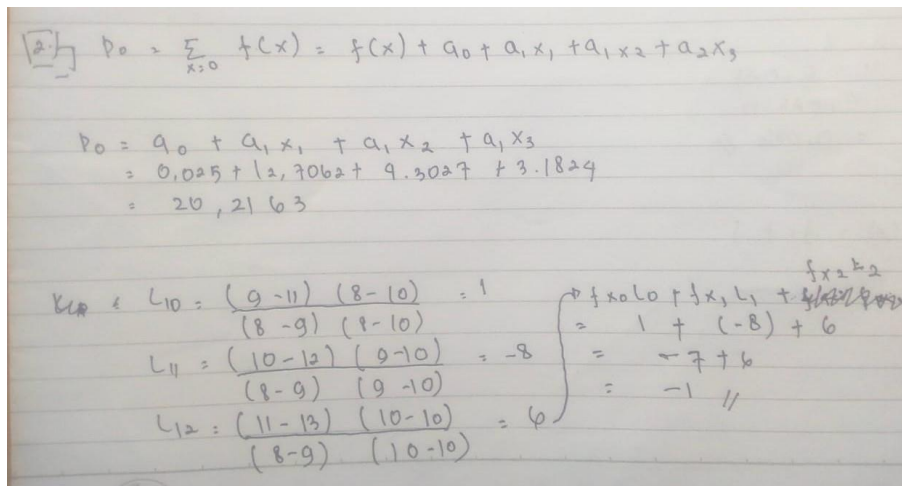 2.) P0 = Σ x=0 f(x) = f(x) + a0 + a1 x1 + a1 x2 + a2 x3
P0 = a0 + a1 x1 + a1 x2 + a1 x3
= 0,025 + 12,7062 + 9.3027 + 3.1824
= 20,2163
L10 = (9-11) (8-10) / (8-9) (8-10) = 1
L11 = (10-12) (9-10) / (8-9) (9-10) = -8
L12 = (11-13) (10-10) / (8-9) (10-10) = 6
fx0 L0 + fx1 L1 + fx2 L2
= 1 + (-8) + 6
= -7 + 6
= -1 //